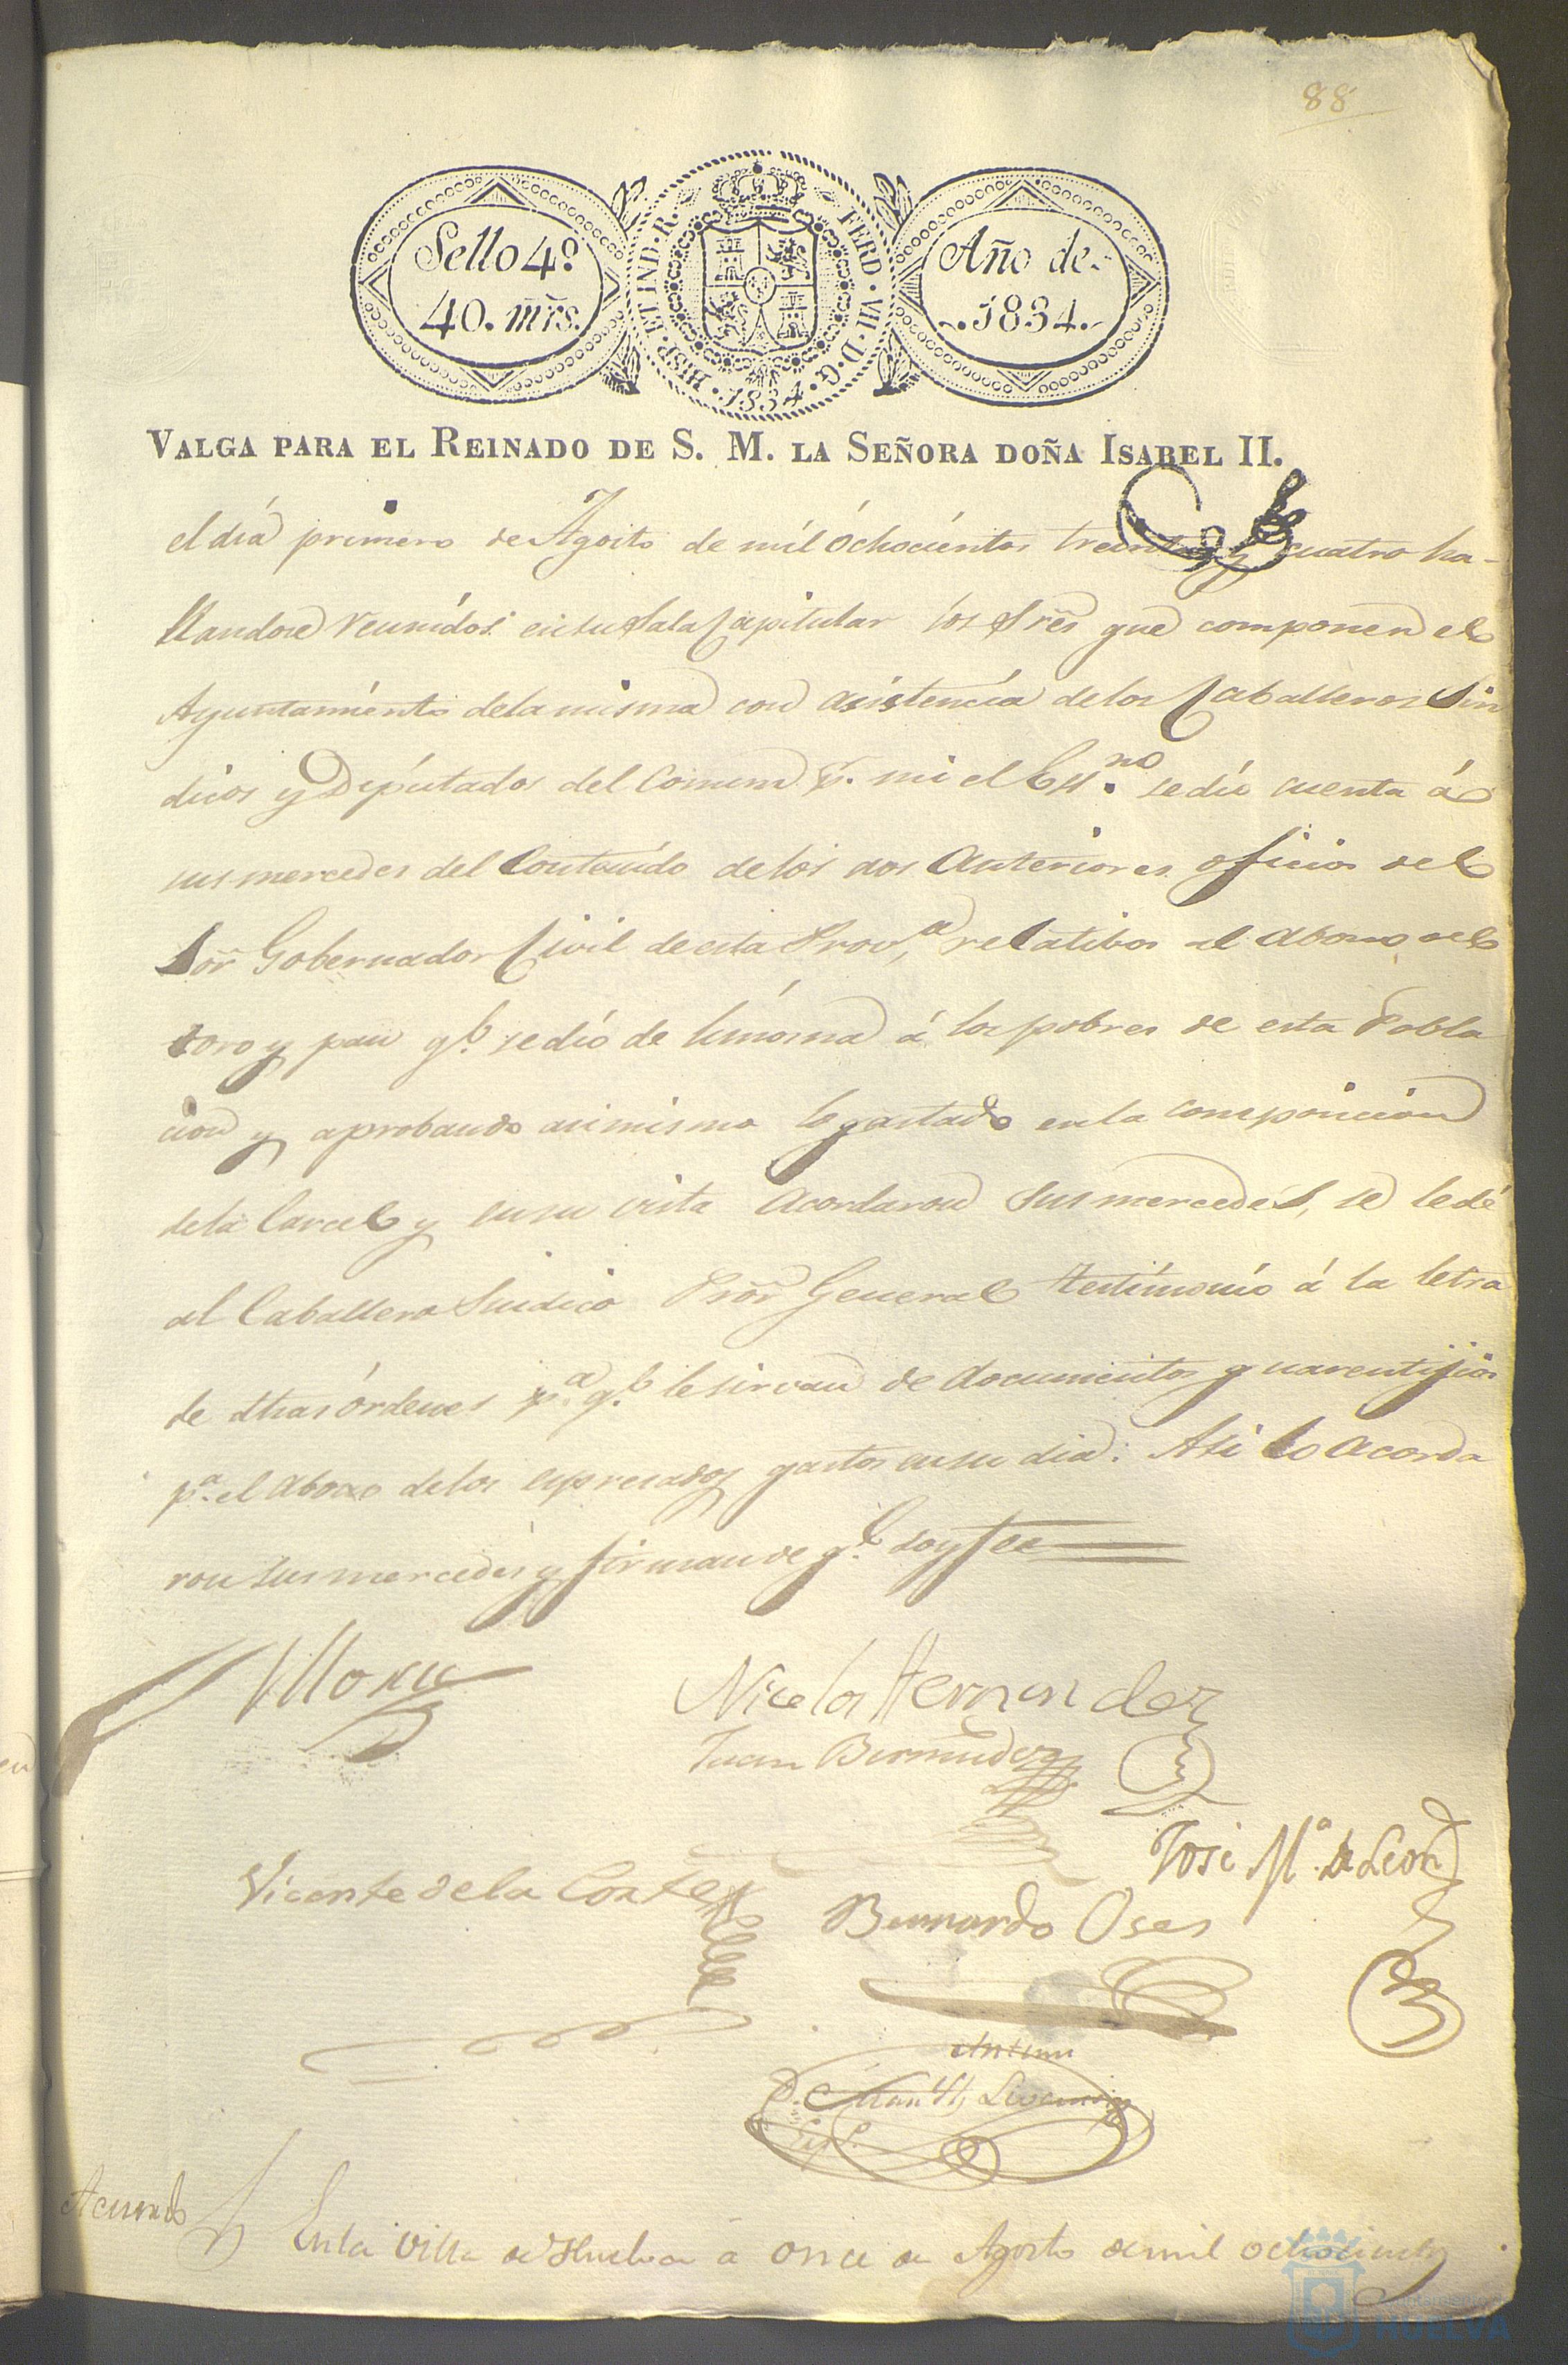 88
Sello 4º
40. mrs.
HISP. ET IND. R.
FERD. VII. D. G.
1834.
Año de
1834.
VALGA PARA EL REINADO DE S. M. LA SEÑORA DOÑA ISABEL II.
el dia primero de Agosto de mil óchocientos treinta y cuatro ha-
llandose reunidos en su Sala Capitular los Sres que componen el
Ayuntamiento dela misma con asistencia delos Caballeros Sin
dicos y Deputados del Comun pr. mi el Essno se dio cuenta á
sus mercedes del Contenido delos dos Anteriores oficios del
Sor Gobernador Civil de esta Prova, relatibos al abono del
toro y pan qe. se dió de limosna á los pobres de esta Pobla
cion y aprobando asimismo lo gastado en la composicion
dela Carcel y en su vista Acordaron Sus mercedes, se le dé
al Caballero Sindico Pror General testimonio á la letra
de dhas órdenes pa. qe. le sirvan de documentos guarentijios
pa. el abono delos espresados gastos en su dia: Asi lo acorda
ron sus mercedes y firman de qe. doy fee
Nicolas Hernandez
Juan Bermudez
José Ma. de Leon
Vicente de la Corte
Bernardo Oses
Antemi
Acuerdo
En la villa de Huelva á once de Agosto de mil ochocientos
HUELVA